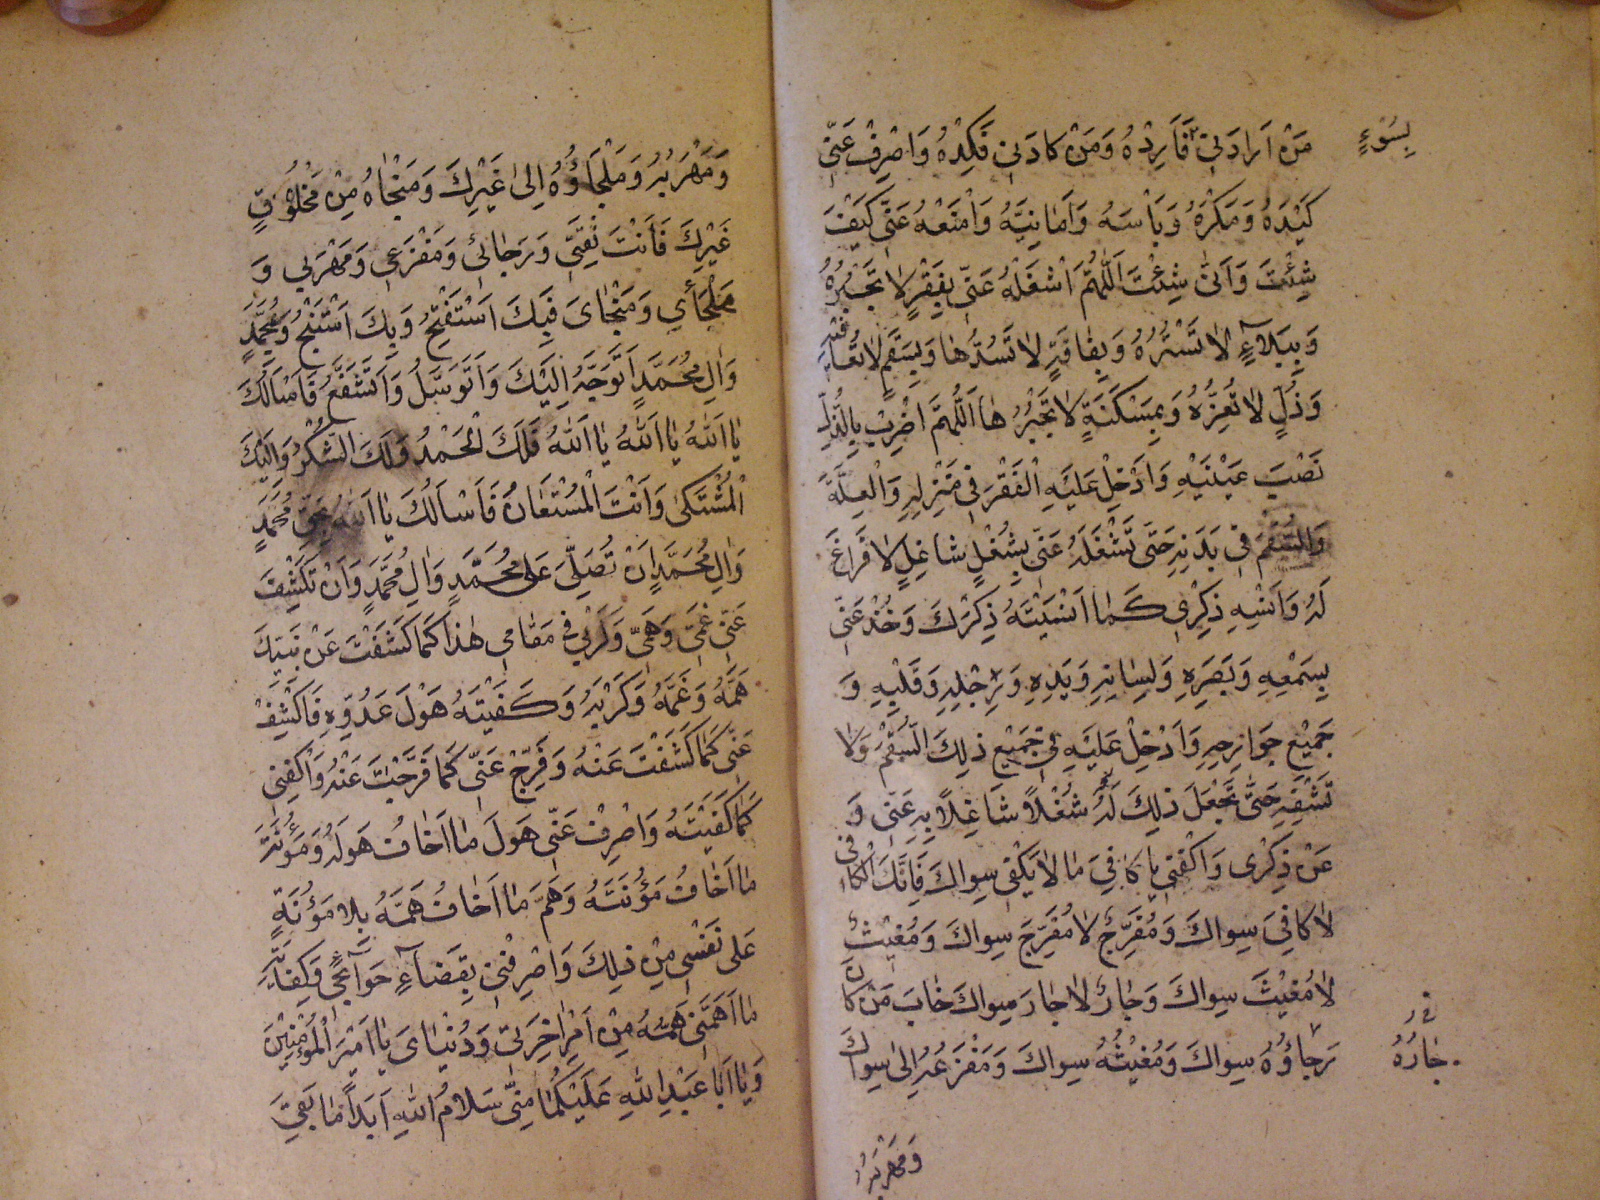 مَنْ اَرَادَنِي فَاَرِدْهُ وَمَنْ كَادَنِي فَكِدْهُ وَاصْرِفْ عَنِّي
بِسُوءٍ
كَيْدَهُ وَمَكْرَهُ وَبَأْسَهُ وَاَمَانِيَّهُ وَامْنَعْهُ عَنِّي كَيْفَ
شِئْتَ وَاَنّٰى شِئْتَ اَللّٰهُمَّ اشْغَلْهُ عَنِّي بِفَقْرٍ لَا تَجْبُرُهُ
وَبِبَلَآءٍ لَا تَسْتُرُهُ وَبِفَاقَةٍ لَا تَسُدُّهَا وَبِسُقْمٍ لَا تُعَافِيهِ
وَذُلٍّ لَا تُعِزُّهُ وَبِمَسْكَنَةٍ لَا تَجْبُرُهَا اَللّٰهُمَّ اضْرِبْ بِالذُّلِّ
نَصْبَ عَيْنَيْهِ وَاَدْخِلْ عَلَيْهِ الْفَقْرَ فِي مَنْزِلِهِ وَالْعِلَّةَ
وَالسُّقْمَ فِي بَدَنِهِ حَتّٰى تَشْغَلَهُ عَنِّي بِشُغْلٍ شَاغِلٍ لَا فَرَاغَ
لَهُ وَاَنْسِهِ ذِكْرِي كَمَا اَنْسَيْتَهُ ذِكْرَكَ وَخُذْ عَنِّي
بِسَمْعِهِ وَبَصَرِهِ وَلِسَانِهِ وَيَدِهِ وَرِجْلِهِ وَقَلْبِهِ وَ
جَمِيْعِ جَوَارِحِهِ وَاَدْخِلْ عَلَيْهِ فِي جَمِيْعِ ذٰلِكَ السُّقْمَ وَلَا
تَشْفِهِ حَتّٰى تَجْعَلَ ذٰلِكَ لَهُ شُغْلًا شَاغِلًا بِهِ عَنِّي وَ
عَنْ ذِكْرِى وَاكْفِنِي يَا كَافِيَ مَا لَا يَكْفِي سِوَاكَ فَاِنَّكَ الْكَافِي
لَا كَافِيَ سِوَاكَ وَمُفَرِّجٌ لَا مُفَرِّجَ سِوَاكَ وَمُغِيْثٌ
لَا مُغِيْثَ سِوَاكَ وَجَارٌ لَا جَارَ سِوَاكَ خَابَ مَنْ كَانَ
رَجَاؤُهُ سِوَاكَ وَمُغِيْثُهُ سِوَاكَ وَمَفْزَعُهُ اِلٰى سِوَاكَ
جَارُهُ
وَمَهْرَبُهُ
وَمَهْرَبُهُ وَمَلْجَاؤُهُ اِلٰى غَيْرِكَ وَمَنْجَاهُ مِنْ مَخْلُوْقٍ
غَيْرِكَ فَاَنْتَ ثِقَتِي وَرَجَائِي وَمَفْزَعِي وَمَهْرَبِي وَ
مَلْجَأِي وَمَنْجَاىَ فَبِكَ اَسْتَفْتِحُ وَبِكَ اَسْتَنْجِحُ وَبِمُحَمَّدٍ
وَاٰلِ مُحَمَّدٍ اَتَوَجَّهُ اِلَيْكَ وَاَتَوَسَّلُ وَاَتَشَفَّعُ فَاَسْاَلُكَ
يَا اَللّٰهُ يَا اَللّٰهُ يَا اَللّٰهُ فَلَكَ الْحَمْدُ وَلَكَ الشُّكْرُ وَاِلَيْكَ
الْمُشْتَكٰى وَاَنْتَ الْمُسْتَعَانُ فَاَسْاَلُكَ يَا اَللّٰهُ بِحَقِّ مُحَمَّدٍ
وَاٰلِ مُحَمَّدٍ اَنْ تُصَلِّيَ عَلٰى مُحَمَّدٍ وَاٰلِ مُحَمَّدٍ وَاَنْ تَكْشِفَ
عَنِّي غَمِّي وَهَمِّي وَكَرْبِي فِي مَقَامِي هٰذَا كَمَا كَشَفْتَ عَنْ نَبِيِّكَ
هَمَّهُ وَغَمَّهُ وَكَرْبَهُ وَكَفَيْتَهُ هَوْلَ عَدُوِّهِ فَاكْشِفْ
عَنِّي كَمَا كَشَفْتَ عَنْهُ وَفَرِّجْ عَنِّي كَمَا فَرَّجْتَ عَنْهُ وَاكْفِنِي
كَمَا كَفَيْتَهُ وَاصْرِفْ عَنِّي هَوْلَ مَا اَخَافُ هَوْلَهُ وَمَؤُنَةَ
مَا اَخَافُ مَؤُنَتَهُ وَهَمَّ مَا اَخَافُ هَمَّهُ بِلَا مَؤُنَةٍ
عَلٰى نَفْسِي مِنْ ذٰلِكَ وَاصْرِفْنِي بِقَضَآءِ حَوَآئِجِي وَكِفَايَةِ
مَا اَهَمَّنِي هَمُّهُ مِنْ اَمْرِ اٰخِرَتِي وَدُنْيَاىَ يَا اَمِيْرَ الْمُؤْمِنِيْنَ
وَيَا اَبَا عَبْدِ اللّٰهِ عَلَيْكُمَا مِنِّي سَلَامُ اللّٰهِ اَبَدًا مَا بَقِيَ